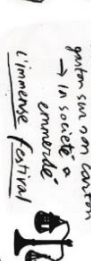 garton sur mon carton
→ In société a
emmerdé
L'immense festival